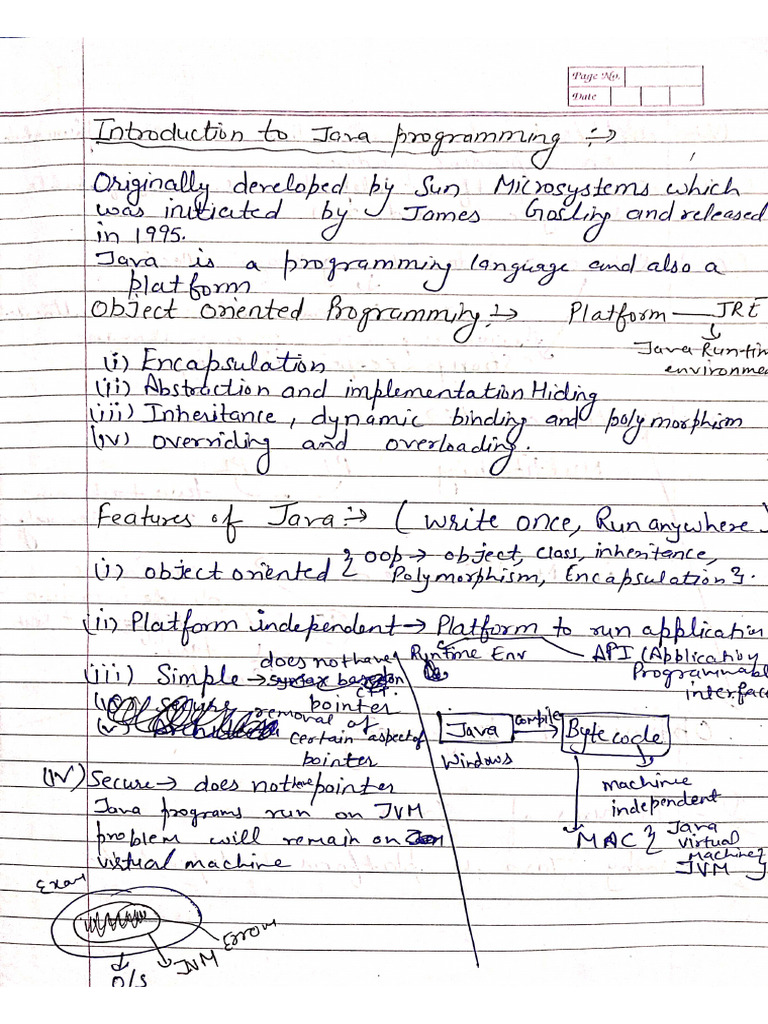 Page No.
Date
Introduction to Java programming :→
Originally developed by Sun Microsystems which
was initiated by James Gosling and released
in 1995.
Java is a programming language and also a
platform
Object Oriented Programming :→ Platform — JRE
Java Run-tim
environme
(i) Encapsulation
(ii) Abstraction and implementation Hiding
(iii) Inheritance, dynamic binding and polymorphism
(iv) overriding and overloading.
Features of Java :→ (write once, Run anywhere)
(i) object oriented { OOP → object, class, inheritance,
Polymorphism, Encapsulation }.
(ii) Platform independent → Platform to run application
Runtime Env
API (Application
Programmable
interface
(iii) Simple → does not have
pointer
removal of
certain aspect of
pointer
Java compile Byte code
Windows
machine
independent
MAC { Java
virtual
machine }
JVM }
(iv) Secure → does not have pointer
Java programs run on JVM
problem will remain on
virtual machine
Error
JVM
O/S